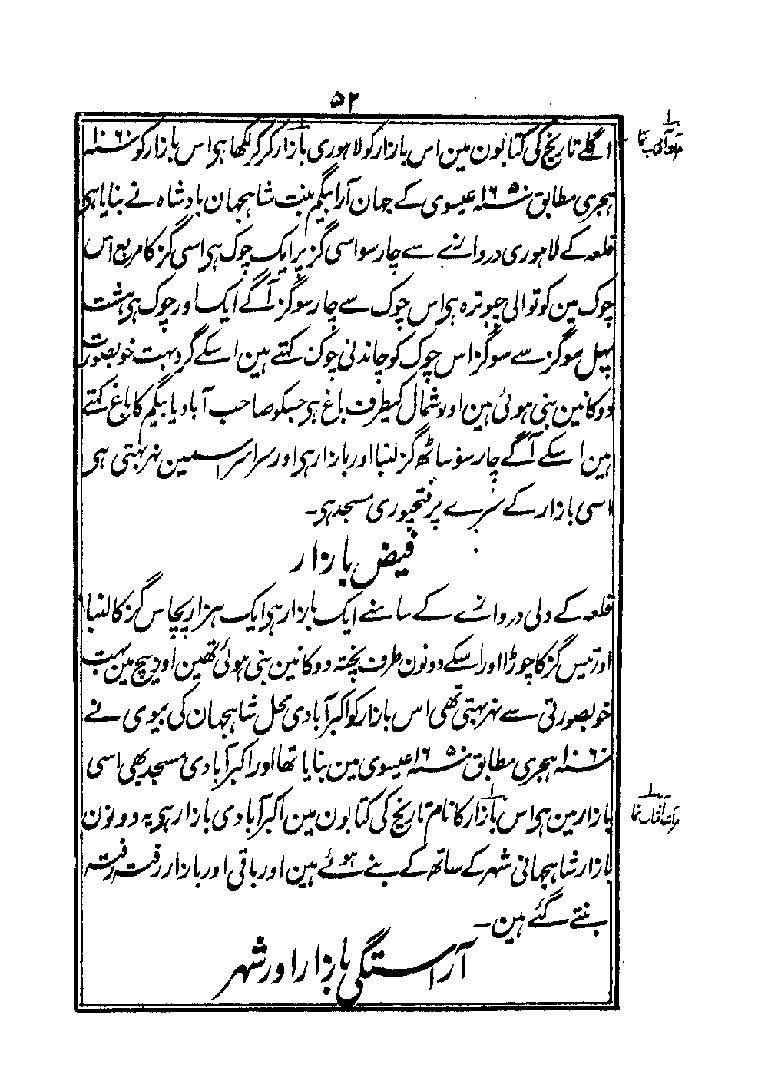 ۵۲
اگلے تاریخ کی کتابون مین اس بازار کو لاہوری بازار کر کر لکھا ہی اس بازار کو سنہ ۱۰۶۰
ہجری مطابق سنہ ۱۶۵۰ عیسوی کے جہان آرا بیگم بنت شاہجہان بادشاہ نے بنایا ہی
قلعہ کے لاہوری دروازے سے چار سو اسی گز پر ایک چوک ہی اسی گز کا مربع اس
چوک مین کوتوالی چبوترہ ہی اس چوک سے چار سو گز آگے ایک اور چوک ہی ہشت
پہل سو گز سے سو گز اس چوک کو چاندنی چوک کہتے ہین اسکے گرد بہت خوبصورت
دوکانین بنی ہوئی ہین اور شمال کیطرف باغ ہی جسکو صاحب آباد یا بیگم کا باغ کہتے
ہین اسکے آگے چار سو ساٹھ گز لنبا اور بازار ہی اور سراسر اسمین نہر بہتی ہی
اسی بازار کے سرے پر فتحپوری مسجد ہی۔
فیض بازار
قلعہ کے دلی دروازے کے سامنے ایک بازار ہی ایک ہزار پچاس گز کا لنبا
اور تیس گز کا چوڑا اور اسکے دونون طرف پختہ دوکانین بنی ہوئی تھین اور بیچ مین بہت
خوبصورتی سے نہر بہتی تھی اس بازار کو اکبرآبادی محل شاہجہان کی بیوی نے
سنہ ۱۰۶۰ ہجری مطابق سنہ ۱۶۵۰ عیسوی مین بنایا تھا اور اکبرآبادی مسجد بھی اسی
بازار مین ہی اس بازار کا نام تاریخ کی کتابون مین اکبرآبادی بازار ہی یہ دونون
بازار شاہجہانی شہر کے ساتھ کے بنے ہوئے ہین اور باقی اور بازار رفتہ رفتہ
بنتے گئے ہین۔
آراستگی بازار اور شہر
۱
مرات آفتاب نما
۱
مرات آفتاب نما